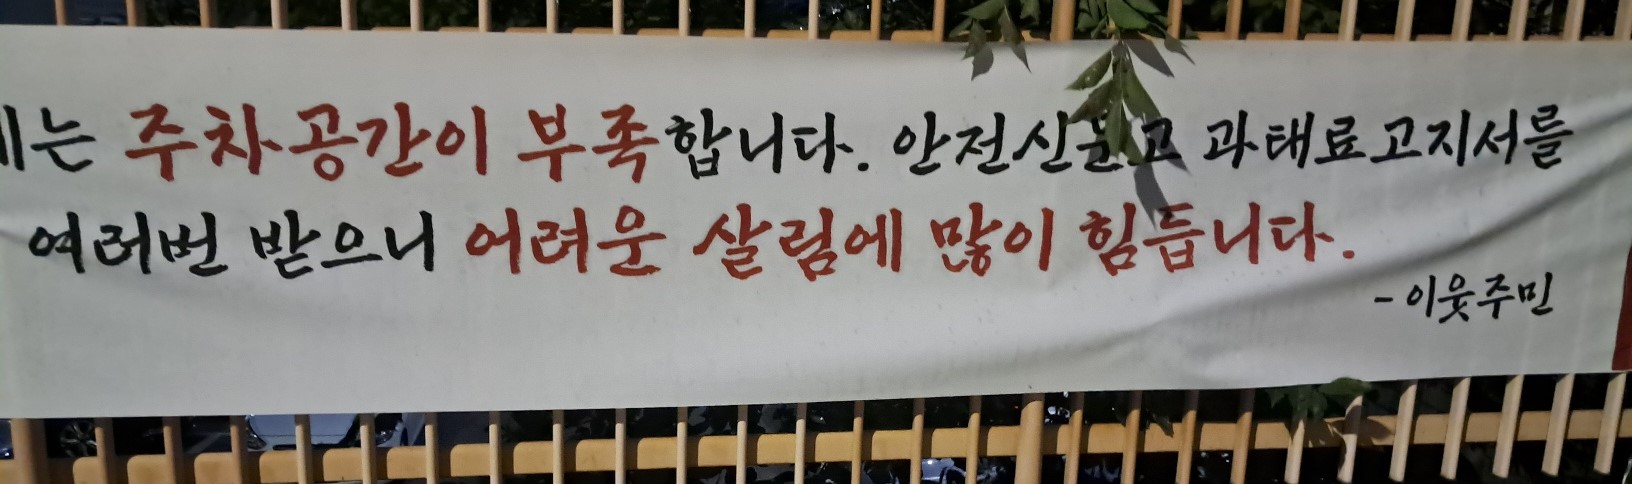 는 주차공간이 부족합니다. 안전신문고 과태료고지서를
여러번 받으니 어려운 살림에 많이 힘듭니다.
- 이웃주민